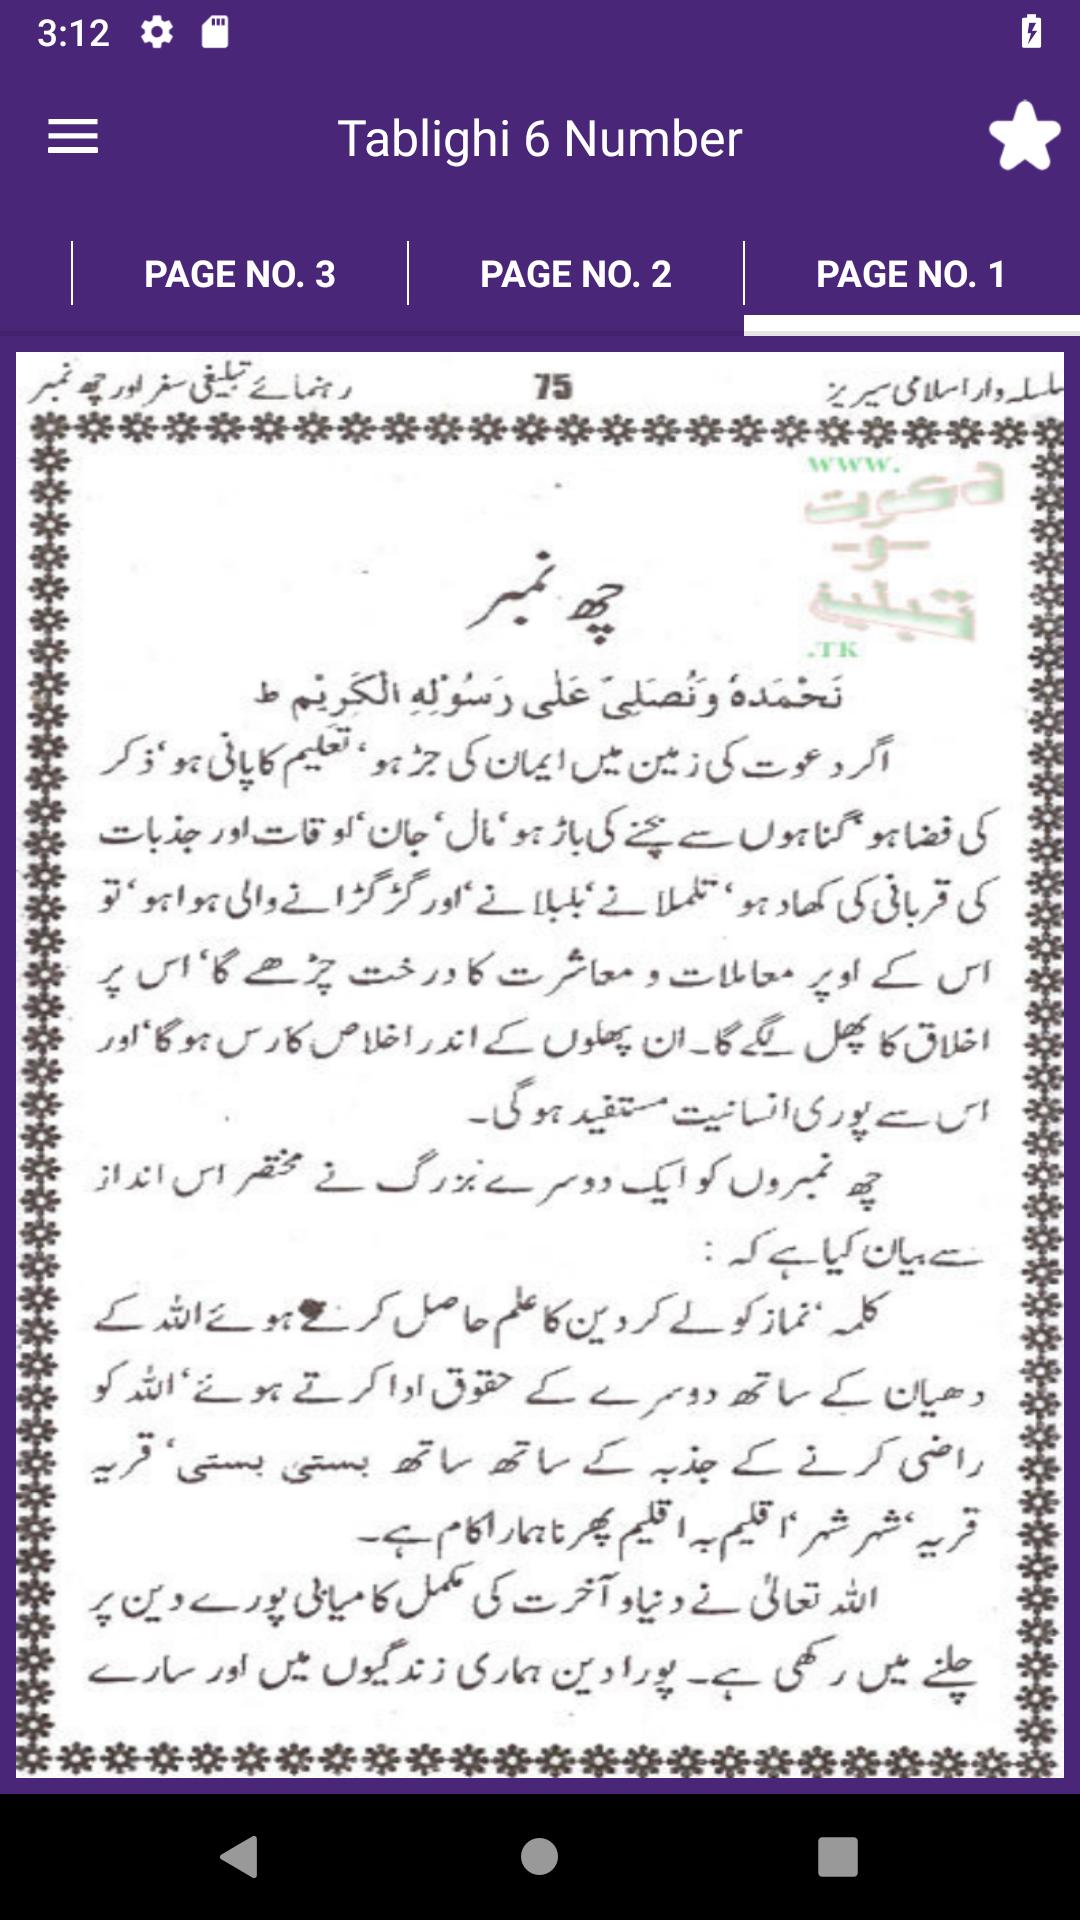 3:12
Tablighi 6 Number
PAGE NO. 3
PAGE NO. 2
PAGE NO. 1
سلسلہ وار اسلامی سیریز 75 رہنمائے تبلیغی سفر اور چھ نمبر
www.
دعوت
و
تبلیغ
.TK
چھ نمبر
نَحْمَدُهٗ وَنُصَلِّیْ عَلٰی رَسُوْلِهِ الْكَرِیْم ط
اگر دعوت کی زمین میں ایمان کی جڑ ہو، تعلیم کا پانی ہو، ذکر
کی فضا ہو، گناہوں سے بچنے کی باڑ ہو، مال، جان، اوقات اور جذبات
کی قربانی کی کھاد ہو، تلملانے، بلبلانے، اور گڑگڑانے والی ہوا ہو، تو
اس کے اوپر معاملات و معاشرت کا درخت چڑھے گا، اس پر
اخلاق کا پھل لگے گا۔ ان پھلوں کے اندر اخلاص کا رس ہو گا، اور
اس سے پوری انسانیت مستفید ہو گی۔
چھ نمبروں کو ایک دوسرے بزرگ نے مختصر اس انداز
سے بیان کیا ہے کہ :
کلمہ، نماز کو لے کر دین کا علم حاصل کرتے ہوئے اللہ کے
دھیان کے ساتھ دوسرے کے حقوق ادا کرتے ہوئے، اللہ کو
راضی کرنے کے جذبہ کے ساتھ ساتھ بستی بستی، قریہ
قریہ، شہر شہر، اقلیم بہ اقلیم پھرنا ہمارا کام ہے۔
اللہ تعالیٰ نے دنیا و آخرت کی مکمل کامیابی پورے دین پر
چلنے میں رکھی ہے۔ پورا دین ہماری زندگیوں میں اور سارے